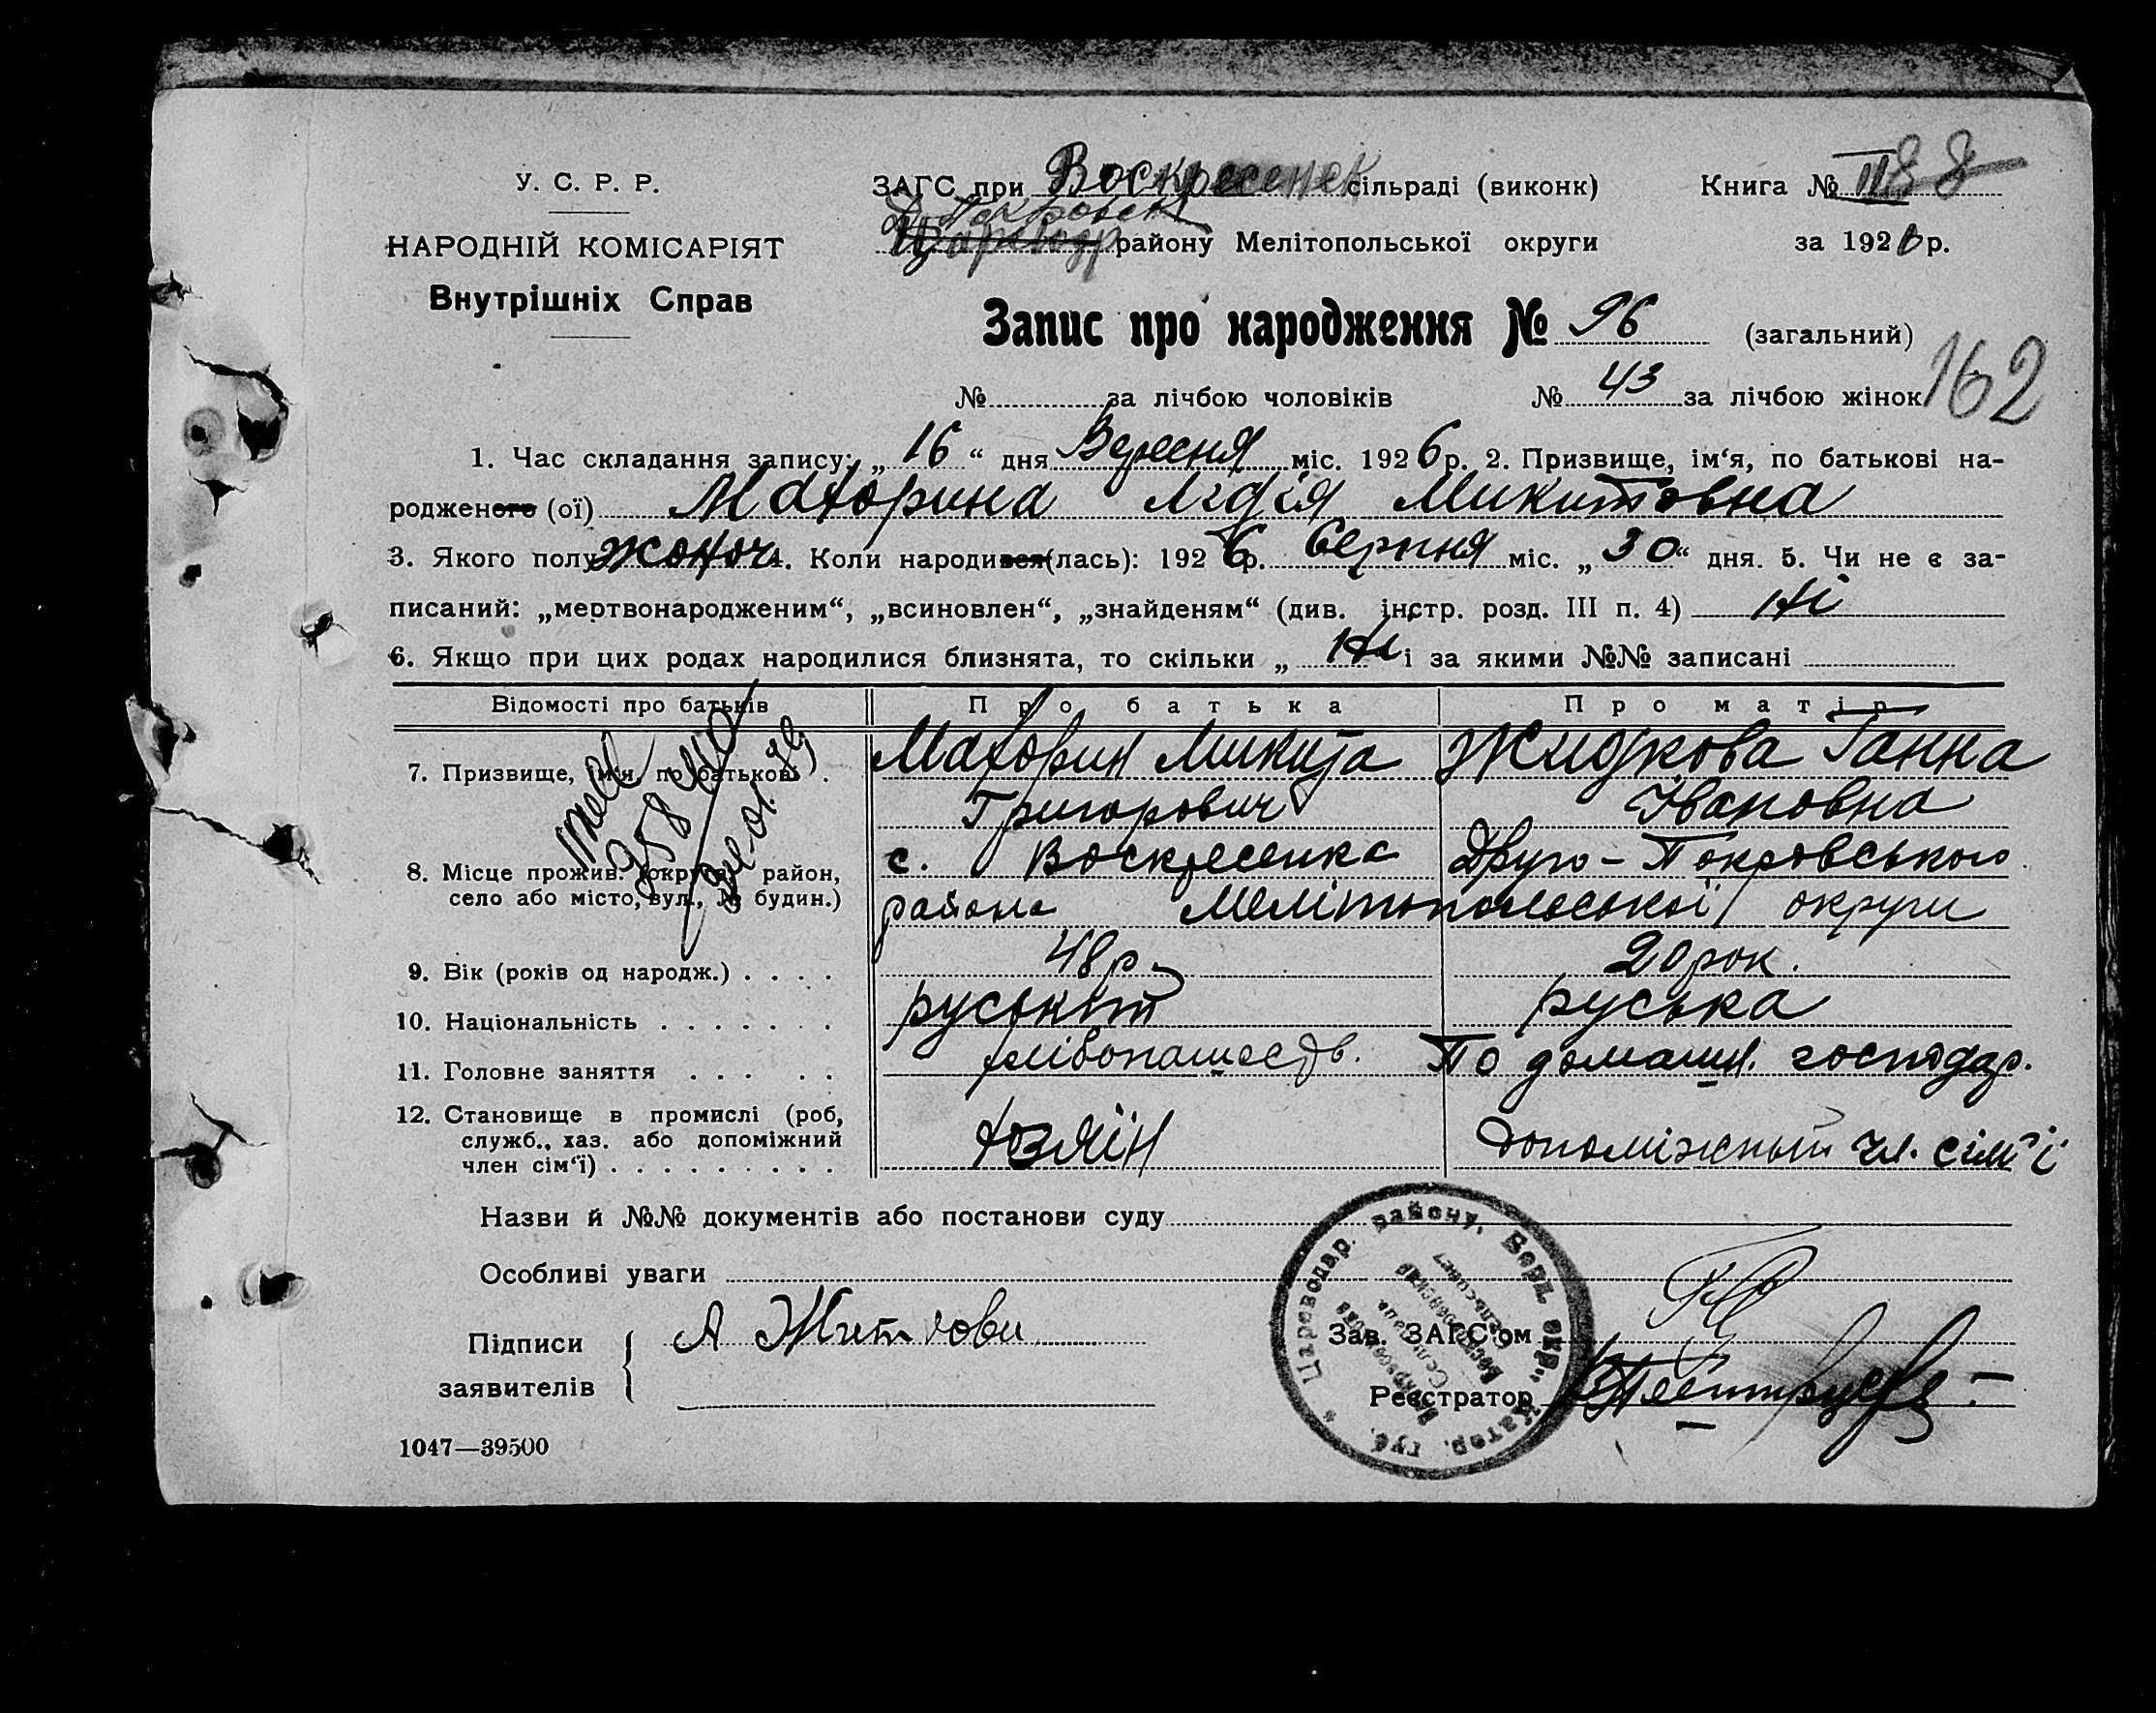 У. С. Р. Р.
НАРОДНІЙ КОМІСАРІЯТ
Внутрішніх Справ
ЗАГС при Воскресенск сільраді (виконк)
Покровск
Цареводр району Мелітопольської округи
Книга № III 88
за 1926 р.
Запис про народження № 96 (загальний)
№ за лічбою чоловіків № 43 за лічбою жінок
162
1. Час складання запису: „16“ дня Вересня міс. 1926 р. 2. Призвище, ім‘я, по батькові на-
родженого (ої) Махорина Лідія Микитовна
3. Якого полу жоноч 4. Коли народився (лась): 1926 р. Серпня міс. „30“ дня. 5. Чи не є за-
писаний: „мертвонародженим“, „всиновлен“, „знайденям“ (див. інстр. розд. III п. 4) Ні
6. Якщо при цих родах народилися близнята, то скільки „ Ні і за якими №№ записані
Відомості про батьків Про батька Про матір
7. Призвище, ім‘я, по батькові . Махорин Микита Жидкова Ганна
Григорович Івановна
8. Місце прожив. (округа, район, с. Воскресенка Друго-Покровського
село або місто, вул., № будин.) района Мелітопольської округи
9. Вік (років од народж.) . . . . 48 р. 20 рок.
10. Національність . . . . . . . руський руська
11. Головне заняття . . . . . хлібопашеств. По домашн. господар.
12. Становище в промислі (роб,
служб., хаз. або допоміжний хозяїн допоміжный чл. сім'ї
член сім‘ї) . . . . . . . . .
Назви й №№ документів або постанови суду
Особливі уваги
Підписи
заявителів
А
Зав. ЗАГС‘ом
Реєстратор
Цареводар. району, Берд. окр., Катер. губ.
1047—39500